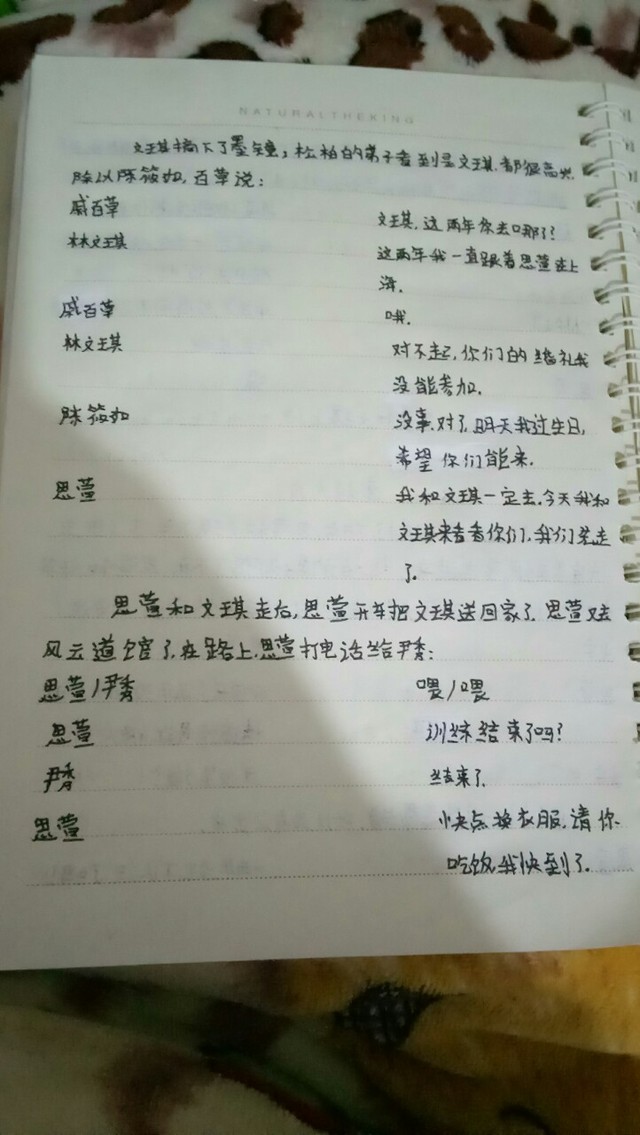 NATURALTHEKING
文琪摘下了墨镜，松柏的弟子看到是文琪，都很高兴.
除以陈筱如，百草说：
戚百草 文琪，这两年你去哪了？
林文琪 这两年我一直跟着思萱在上
海.
戚百草 哦.
林文琪 对不起，你们的婚礼我
没能参加.
陈筱如 没事.对了，明天我过生日，
希望你们能来.
思萱 我和文琪一定去.今天我和
文琪来看看你们，我们先走
了.
思萱和文琪走后，思萱开车把文琪送回家了.思萱又去
风云道馆了，在路上，思萱打电话给尹秀：
思萱/尹秀 喂/喂
思萱 训练结束了吗？
尹秀 结束了.
思萱 快点换衣服，请你
吃饭，我快到了.